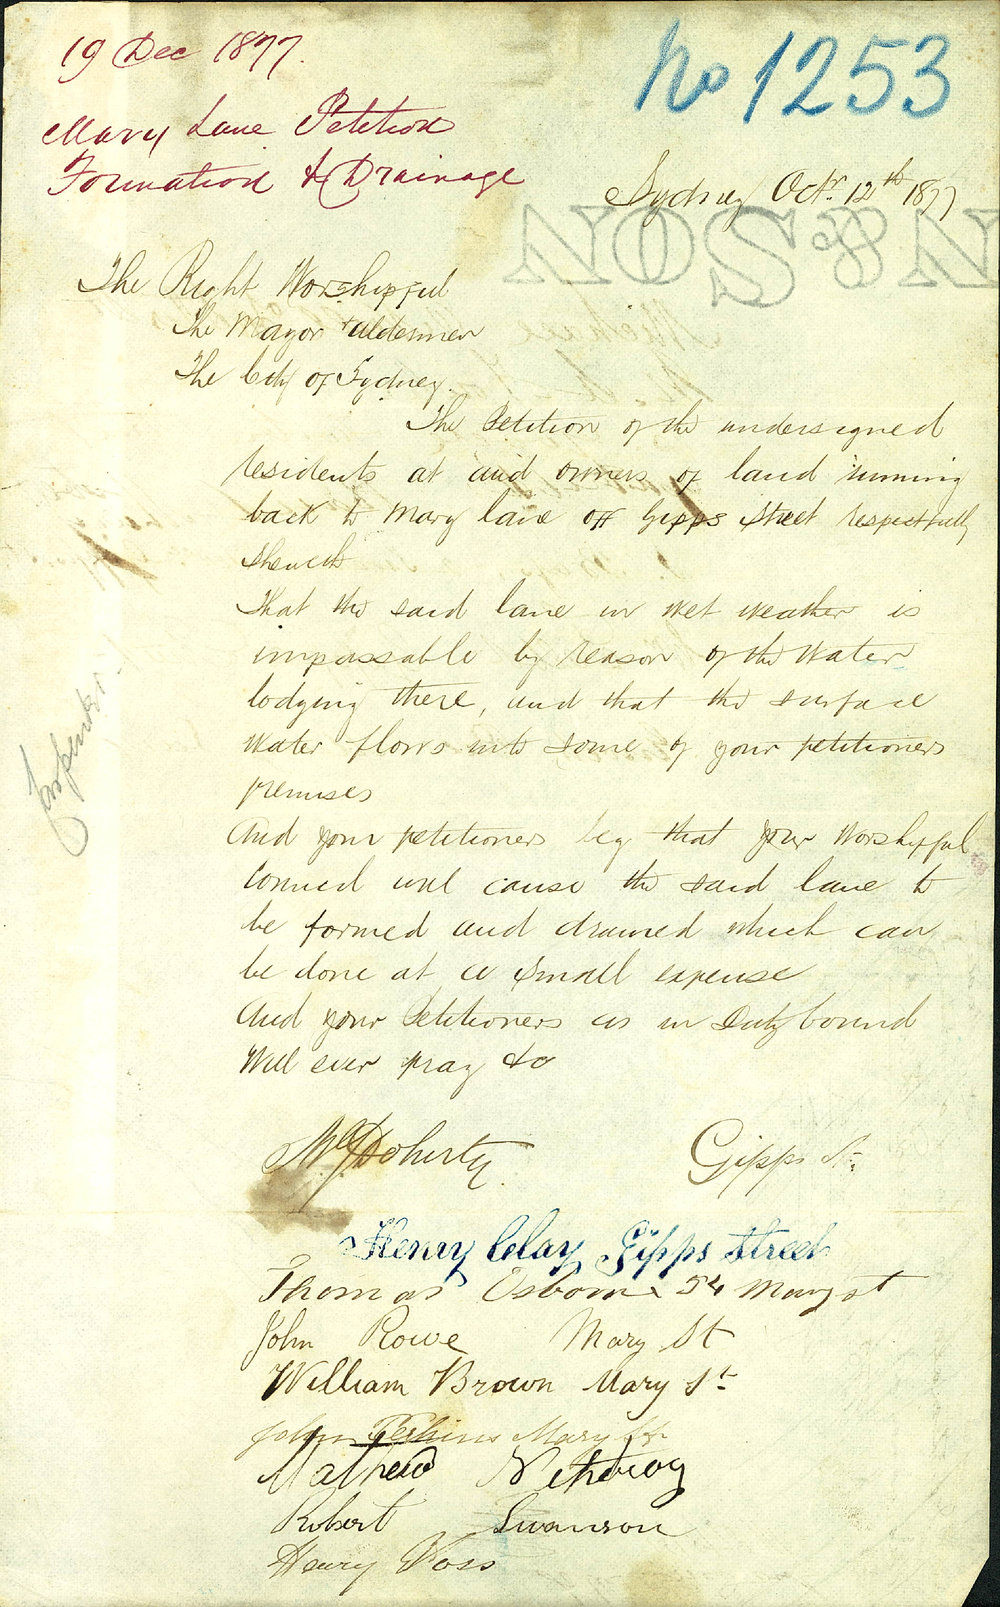 19 Dec 1877.
No 1253
Mary Lane Petition
Formation & Drainage
Sydney Octr. 12th 1877
N & SON
The Right Worshipful
The Mayor + Aldermen
The City of Sydney.
The Petition of the undersigned
residents at and owners of land running
back to Mary lane off Gipps Street respectfully
sheweth
That the said lane in wet weather is
impassable by reason of the Water
lodging there, and that the surface
Water flows into some of your petitioners
premises
And your petitioners beg that your Worshipful
Council will cause the said lane to
be formed and drained which can
be done at a small expense
And your Petitioners as in Duty bound
Will ever pray &c
Doherty
Gipps St
Henry Clay Gipps Street
Thomas Osborne 54 Mary st
John Rowe Mary St
William Brown Mary St
John Perkins Mary St
Mathew
Robert Swanson
Henry Voss